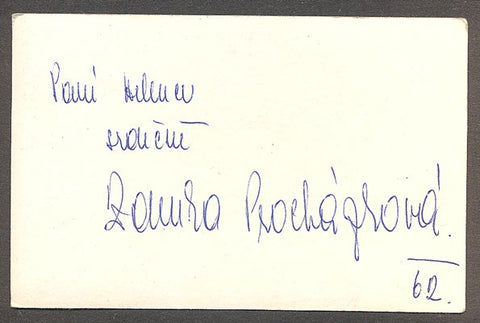 Paní Helence
srdečně
Zdenka Procházková.
62.